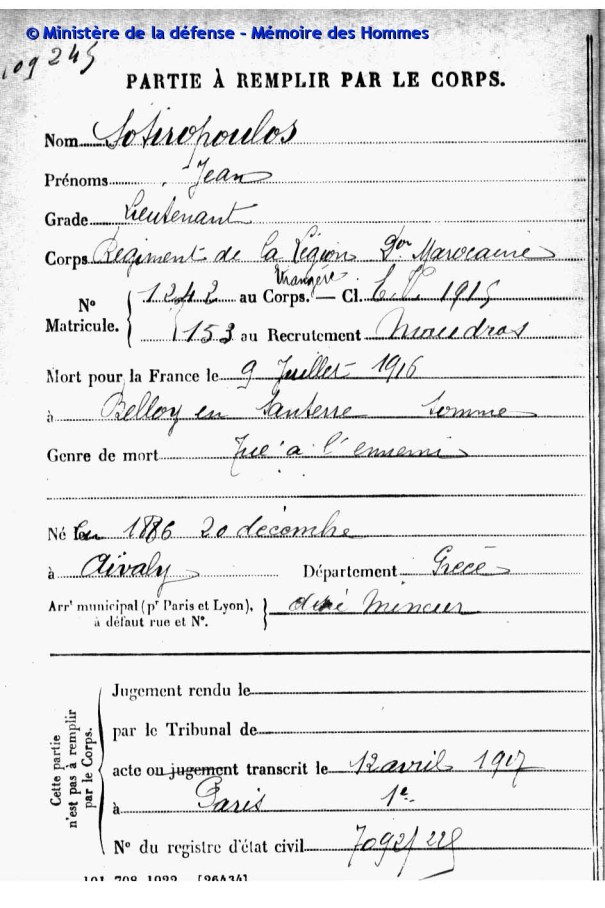 © Ministère de la défense - Mémoire des Hommes
109 245
PARTIE À REMPLIR PAR LE CORPS.
Nom Sotiropoulos
Prénoms Jean
Grade Lieutenant
Corps Régiment de la Légion Don Marocaine
Etrangère
N° Matricule. 1242 au Corps. — Cl. E.V. 1915
153 au Recrutement Moudros
Mort pour la France le 9 Juillet 1916
à Belloy en Santerre Somme
Genre de mort Tué à l'ennemi
Né le 1886 20 décembre
à Aïvaly Département Grèce
Arrt municipal (pr Paris et Lyon), à défaut rue et N°. Mineur
Jugement rendu le
par le Tribunal de
acte ou jugement transcrit le 12 avril 1917
à Paris 1e
N° du registre d'état civil 7092/225
Cette partie n'est pas à remplir par le Corps.
101.708.1922. [26434]